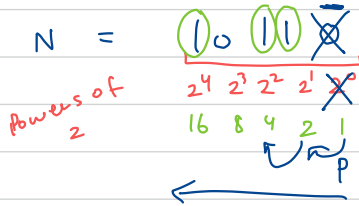 N = 1 0 1 1 0
Powers of 2 2⁴ 2³ 2² 2¹ 2⁰
16 8 4 2 1
P